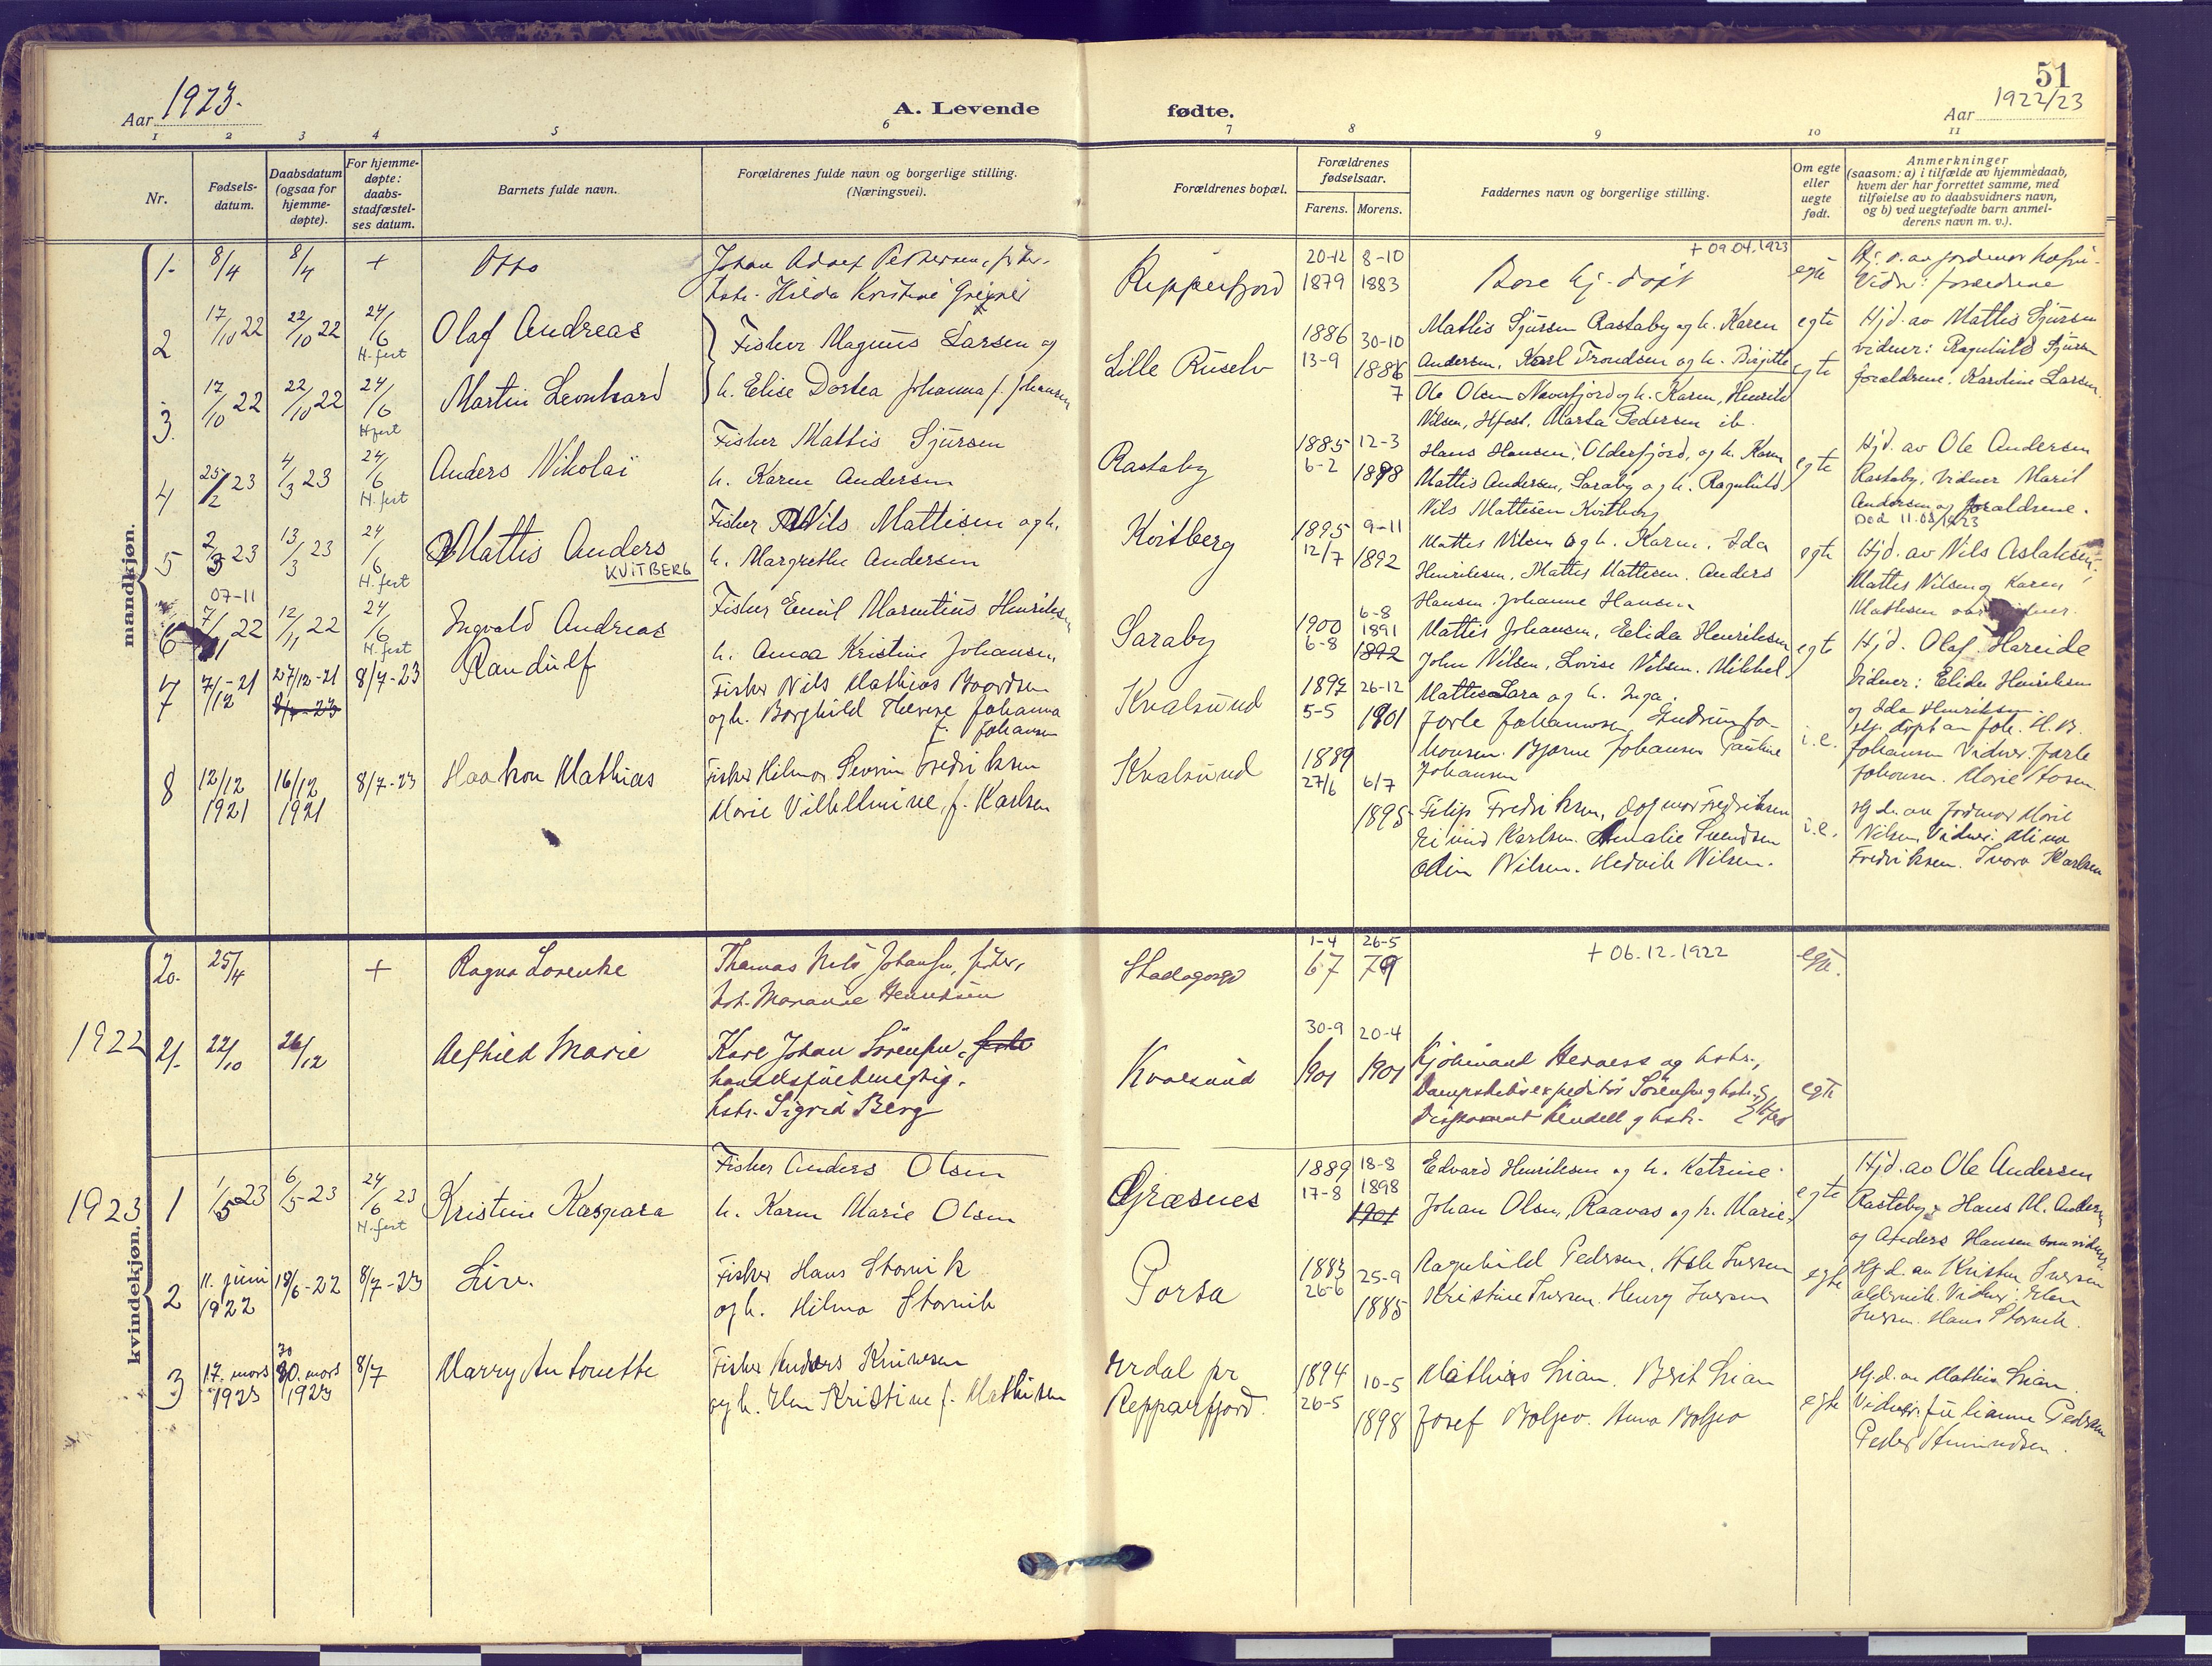 51
Aar 1923.
A. Levende
fødte.
Aar 1922/23
1 2 3 4 5 6 7 8 9 10 11
Nr.
Fødsels-
datum.
Daabsdatum
(ogsaa for
hjemme-
døpte).
For hjemme-
døpte:
daabs-
stadfæstel-
ses datum.
Barnets fulde navn.
Forældrenes fulde navn og borgerlige stilling.
(Næringsvei).
Forældrenes bopæl.
Forældrenes
fødselsaar.
Farens. Morens.
Faddernes navn og borgerlige stilling.
Om egte
eller
uegte
født.
Anmerkninger
(saasom: a) i tilfælde av hjemmedaab,
hvem der har forrettet samme, med
tilføielse av to daabsvidners navn,
og b) ved uegtefødte barn anmel-
derens navn m. v.).
mandkjøn.
1. 8/4 8/4 + Otto
Johan Adolf Pettersen, fisker.
hstr. Hilda Kristine
Repperfjord
20-12 8-10
1879 1883
+ 09.04.1923
Bare hj. døpt
egte
Vidner: forældrene
2 17/10 22 22/10 22 24/6 H.fest
Olaf Andreas
Fisker Magnus Larsen og
Lille Ruselv
1886 30-10
13-9 1886
7
Mattis Sjursen Rastaby og h. Karen
Andersen, Karl Trondsen og h. Birgitte
egte
Hjd. av Mattis Sjursen
vidner: Ragnhild Sjursen
forældrene. Karoline Larsen
3. 17/10 22 22/10 22 24/6 H.fest
Martin Leonhard
h. Elise Dortea Johanna f. Johansen
Ole Olsen Neverfjord og h. Karen, Henrik
Nilsen, Hfest, Marta Pedersen ib.
egte
4 25/2 23 4/3 23 24/6 H.fest
Anders Nikolai
Fisker Mattis Sjursen
h. Karen Andersen
Rastaby
1885 12-3
6-2 1898
Hans Hansen, Olderfjord, og h. Karen
Mattis Andersen, Saraby og h. Ragnhild
Nils Mattisen Kvitberg
egte
Hjd. av Ole Andersen
Rastaby, Vidner Marit
Andersen og forældrene.
Død 11.03.1923
5 2/3 23 13/3 23 24/6 H.fest
Mattis Anders
KVITBERG
Fisker Nils Mattisen og h.
h. Margrethe Andersen
Kvitberg
1895 9-11
12/7 1892
Mattis Nilsen og h. Karen. Ida
Henriksen, Mattis Mattisen. Anders
Hansen. Johanne Hansen
egte
Hjd. av Nils Aslaksen,
Mattis Nilsen og Karen
Mathisen
6 07-11 7/11 22 12/11 22 24/6 H.fest
Ingvald Andreas
Fisker Emil Marentius Henriksen
h. Anna Kristine Johansen,
Saraby
1900 6-8 1891
6-8 1892
Mattis Johansen, Elida Henriksen
John Nilsen, Lovise Nilsen. Mikkel
Mattis Sara og h. Inga.
egte
Hjd. Olaf Hareide
Vidner: Elida Henriksen
og Ida Henriksen.
7 7/12-21 27/12-21 8/7-23 8/7-23
Randulf
Fisker Nils Mathias Baardsen
og h. Borghild Therese Johanna
f. Johansen
Kvalsund
1897 26-12
5-5 1901
Jarle Johannsen, Gudrun Jo-
hansen. Bjarne Johansen Pauline
Johansen
i.e.
Johansen Vidner Jarle
Johansen. Marie Hosen.
8 12/12 1921 16/12 1921 8/7-23
Haakon Mathias
Fisker Hilmar Severin Fredriksen
Marie Vilhelmine, f. Karlsen
Kvalsund
1889
27/6 6/7
1895
Filip Fredriksen, Dagmar Fredriksen
Eivind Karlsen. Amalie Svendsen
Odin Nilsen. Hedvik Nilsen.
i.e.
Hj.d. av Jordmor Marie
Nilsen, Vidner: Mina
Fredriksen. Ivara Karlsen
20. 25/4 + Ragna Lorentze
Thomas Nils Johansen, fisker,
hst. Marianne Henriksen
1-4 26-5
67 79
+ 06.12.1922
egte.
1922 21. 22/10 26/12
Alfhild Marie
Karl Johan Sørensen,
handelsfuldmegtig.
hstr. Sigrid Berg
Kvalsund
30-9 20-4
1901 1901
Kjøbmand og hstr.,
Dampskibsexpeditør Sørensen og hstr.
egte
kvindekjøn.
1923 1 1/5 23 6/5-23 24/6 23 H.fest
Kristine Kaspara
Fisker Anders Olsen
h. Karen Marie Olsen
Græsnes
1889 18-8
17-8 1898
1901
Edvard Henriksen og h. Katrine
Johan Olsen, Raavas og h. Marie
egte
Hjd. av Ole Andersen
Rasteby, Hans M. Andersen
og Anders Hansen som vidner
2 11. juni 1922 18/6-22 8/7-23
Liv.
Fisker Hans Storvik
og h. Hilma Storvik
Porsa
1883 25-9
26-6 1885
Ragnhild Pedersen, Iversen
Kristine Iversen. Henry Iversen
egte
Hj.d. av Kristen Iversen
Iversen. Hans Storvik.
3 17. mars 1923 30 30. mars 1923 8/7
Marry Antonette
Fisker Anders
og h. Kristine f. Mathisen
Erdal pr
Repparfjord.
1894 10-5
26-5 1898
Mathias Lian. Berit Lian
Josef Anna
egte
Hj.d. av Mathis Lian.
Vidner: Julianne Pedersen
Peder Amundsen.